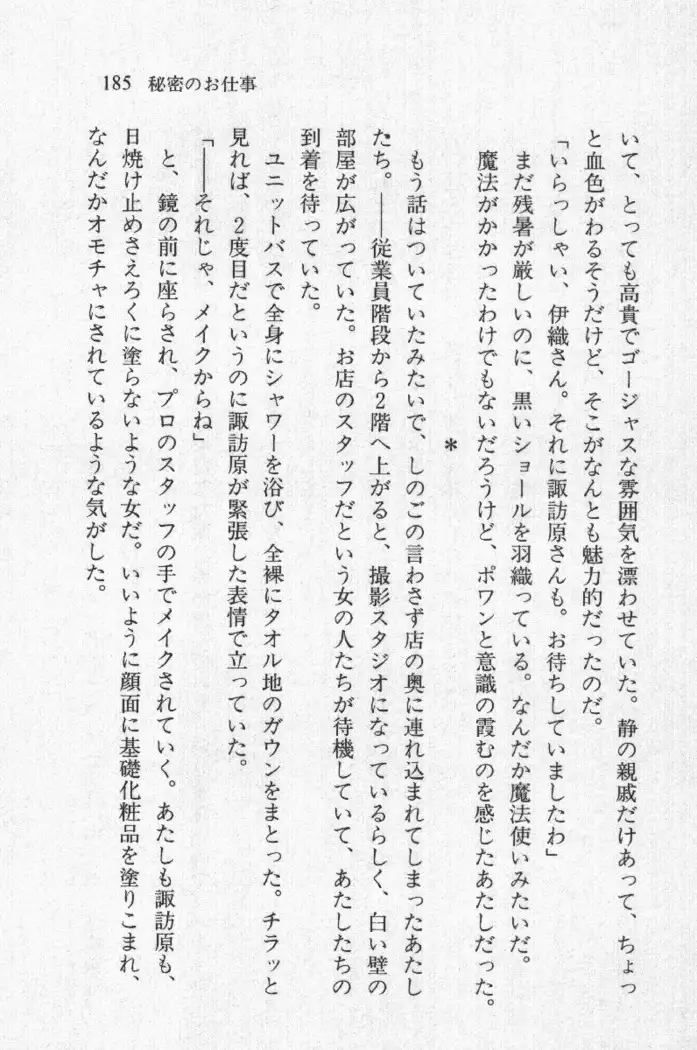 185 秘密のお仕事
いて、とっても高貴でゴージャスな雰囲気を漂わせていた。静の親戚だけあって、ちょっ
と血色がわるそうだけど、そこがなんとも魅力的だったのだ。
「いらっしゃい、伊織さん。それに諏訪原さんも。お待ちしていましたわ」
まだ残暑が厳しいのに、黒いショールを羽織っている。なんだか魔法使いみたいだ。
魔法がかかったわけでもないだろうけど、ポワンと意識の霞むのを感じたあたしだった。
*
もう話はついていたみたいで、しのごの言わさず店の奥に連れ込まれてしまったあたし
たち。――従業員階段から2階へ上がると、撮影スタジオになっているらしく、白い壁の
部屋が広がっていた。お店のスタッフだという女の人たちが待機していて、あたしたちの
到着を待っていた。
ユニットバスで全身にシャワーを浴び、全裸にタオル地のガウンをまとった。チラッと
見れば、2度目だというのに諏訪原が緊張した表情で立っていた。
「――それじゃ、メイクからね」
と、鏡の前に座らされ、プロのスタッフの手でメイクされていく。あたしも諏訪原も、
日焼け止めさえろくに塗らないような女だ。いいように顔面に基礎化粧品を塗りこまれ、
なんだかオモチャにされているような気がした。